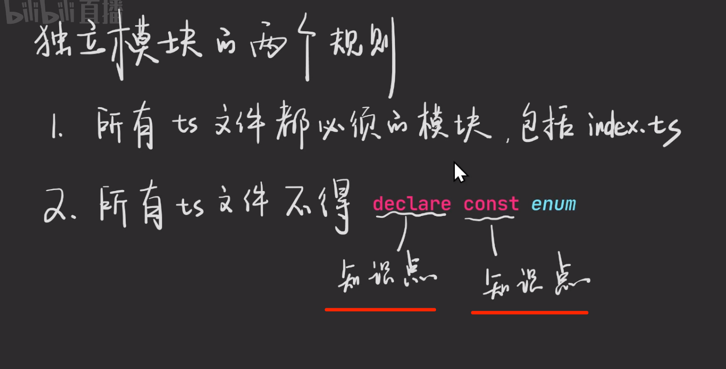 bilibili直播
独立模块的两个规则
1. 所有 ts 文件都必须的模块,包括 index.ts
2. 所有 ts 文件不得 declare const enum
知识点 知识点